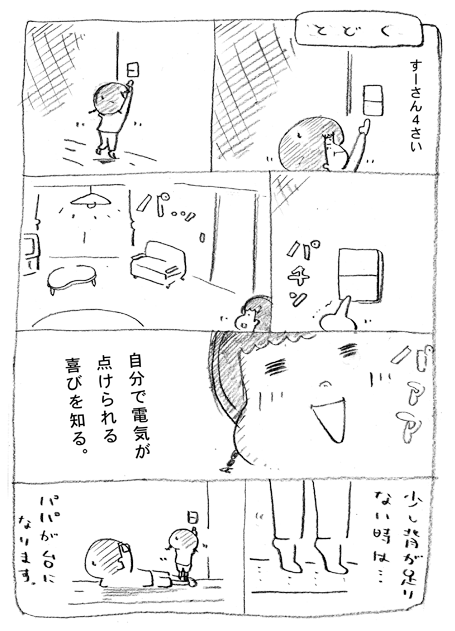 とどく
すーさん4さい
パチン
パーッ
パアア
自分で電気が
点けられる
喜びを知る。
少し背が足り
ない時は…
パパが台に
なります。